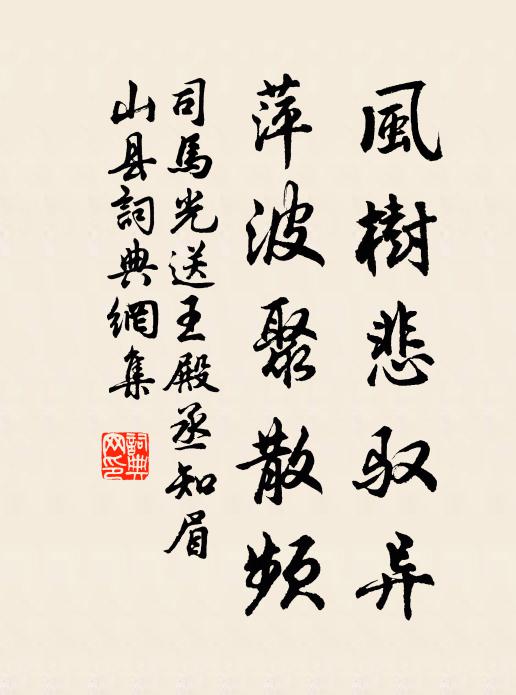 風樹悲驭异
萍波聚散頻
司馬光送王殿丞知眉
山县詞典網集
詞典
网印